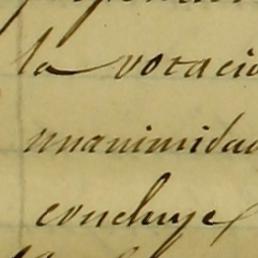 la votacio
unanimidad
concluye